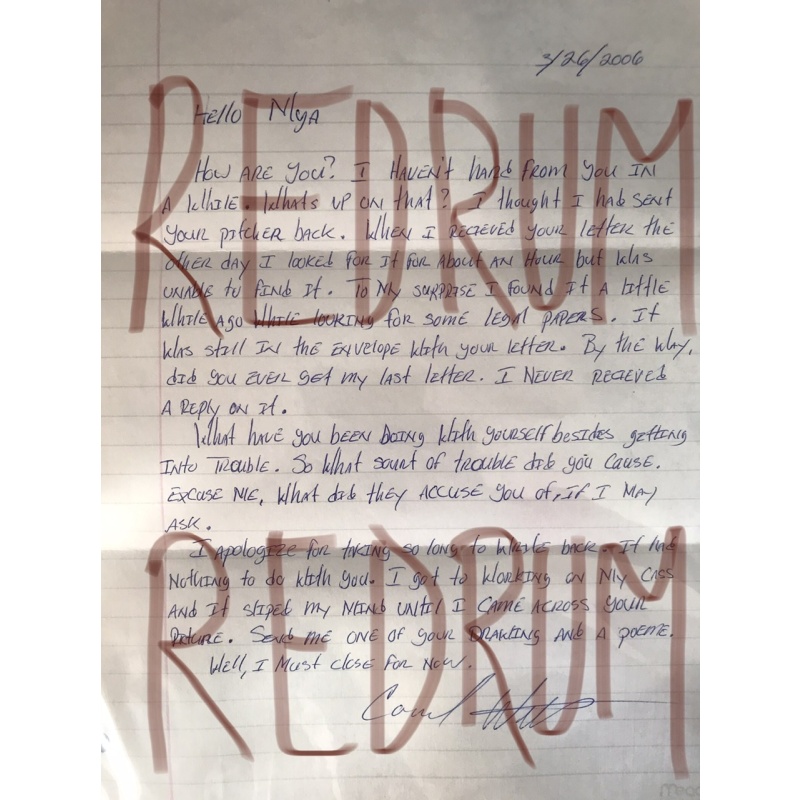 3/26/2006
REDRUM
Hello Nlya
How ARE you? I HAVEN't hard from you IN
A While. Whats up on that? I thought I had sent
your pitcher back. When I recieved your letter the
other day I looked for It for About an Hour but Was
unable to find It. To My surprise I found It a little
While ago While looking for some legal papers. It
Was still In the envelope With your letter. By the Way,
did you ever get my last letter. I Never recieved
A Reply on It.
What have you been Doing With yourself besides getting
Into Trouble. So What sount of trouble did you cause.
Excuse Me, What did they accuse you of, if I May
Ask.
REDRUM
I Apologize for taking so long to Write back. It had
Nothing to do With you. I got to Working on My
And It sliped my Mind until I came across your
Picture. Send me one of your Drawing and a poeme.
Well, I Must close for Now.
Mead